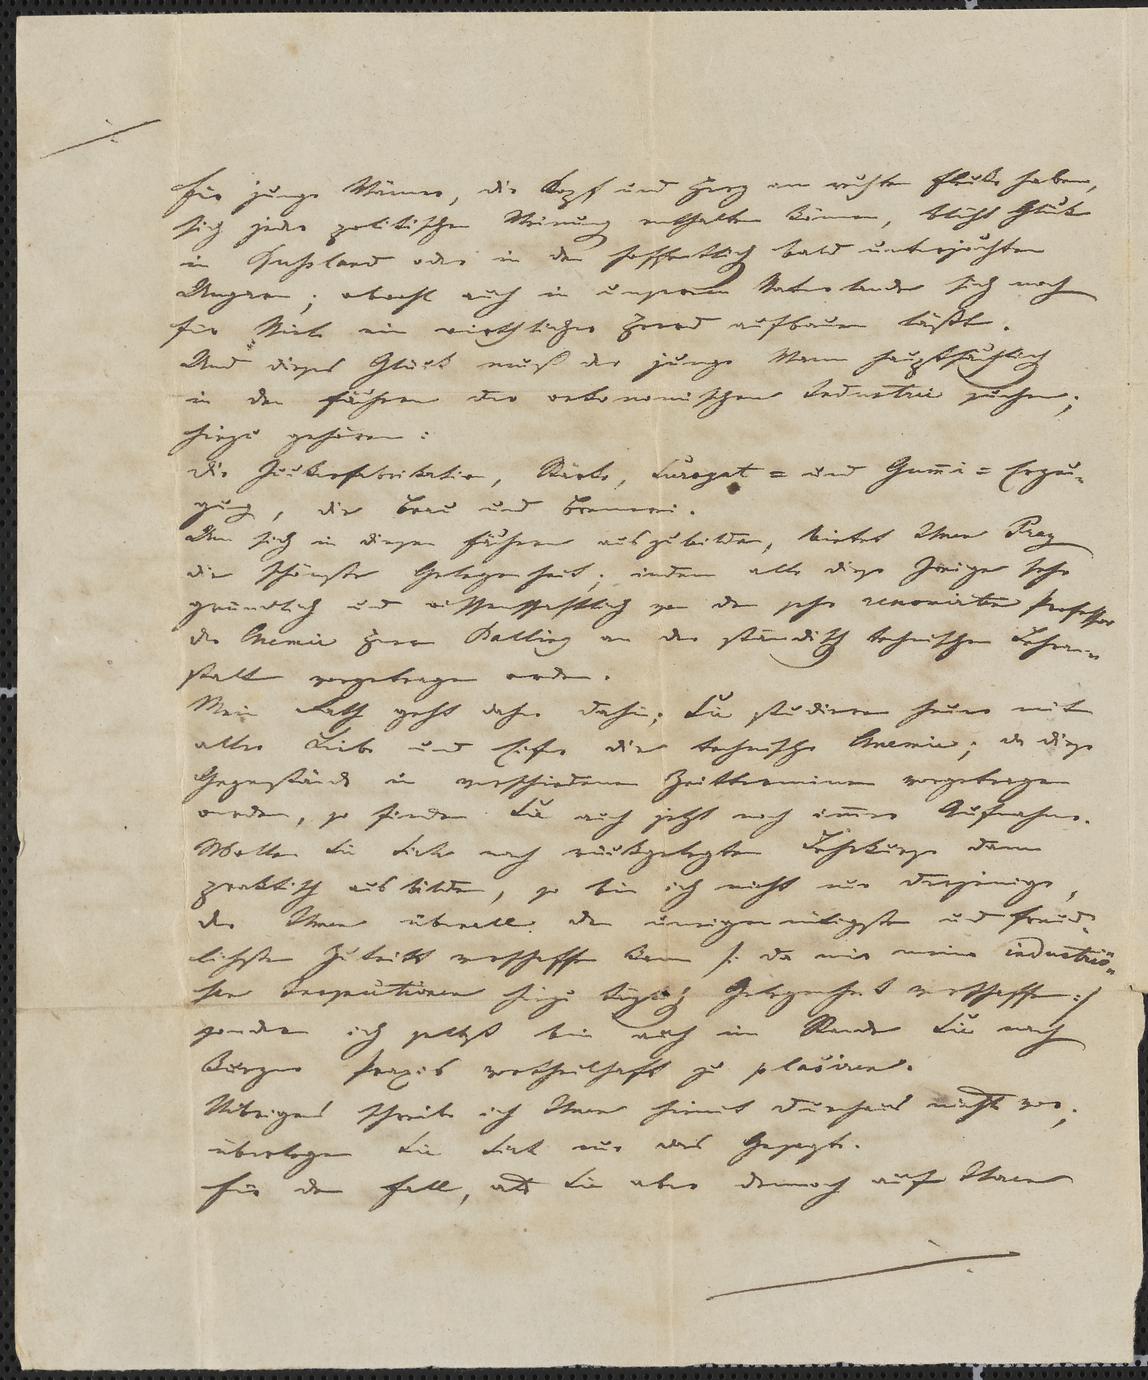 Für junge Männer, die Kopf und Herz am rechten Flecke haben,
sich jeder politischen Meinung enthalten können, blüht Glück
in Rußland oder in dem hoffentlich bald unterjochten
Ungarn; obwohl auch in unserem Vaterlande sich noch
für Viele ein wirthlicher Herd aufbauen läßt.
Und dieses Glück muß der junge Mann hauptsächlich
in den Fächern der oekonomischen Industrie suchen;
hiezu gehören:
die Zuckerfabrikation, Stärke, Surogat = und Gum̄i = Erzeu-
gung, die Brau und Brennerei.
Um sich in diesen Fächern auszubilden, bietet Ihnen Prag
die schönste Gelegenheit; indem alle diese Zweige sehr
gründlich und wissenschaftlich von dem sehr renomirten Professor
der Chemie Herrn Balling an der ständisch technischen Lehran-
stalt vorgetragen werden.
Mein Rath geht daher dahin; Sie studieren heuer mit
aller Liebe und Eifer die technische Chemie; da diese
Gegenstände in verschiedenen Zeitterminen vorgetragen
werden, so finden Sie auch jetzt noch im̄er Aufnahme.
Wollen Sie Sich nach rückgelegtem Lehrkurse dann
praktisch ausbilden, so bin ich nicht nur derjenige,
der Ihnen überall den uneigennützigsten und freund-
lichsten Zutritt verschaffen kann /: da mir meine industriö-
sen hiezu Gelegenheit verschaffen :/
sondern ich selbst bin auch im Stande Sie nach
kurzer Praxis vortheilhaft zu plaçiren.
Uibrigens schreibe ich Ihnen hiemit durchaus nichts vor;
überlegen Sie Sich nur das Gesagte.
Für den Fall, als Sie aber dennoch auf Ihren